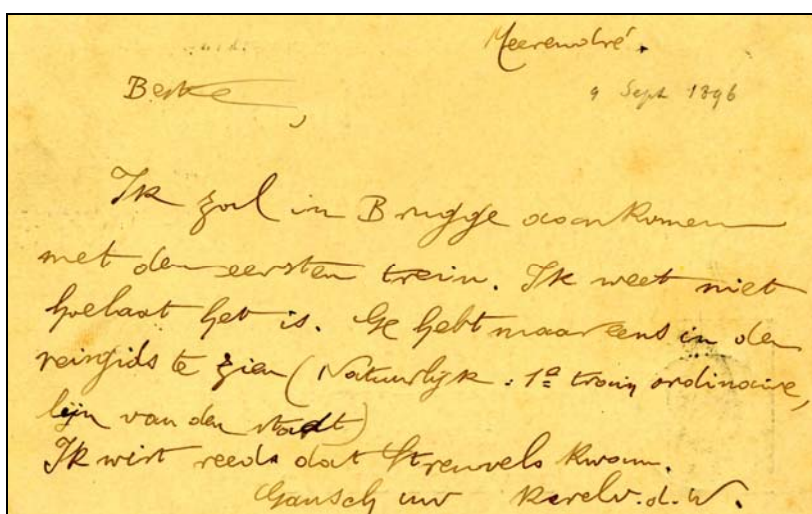 Meerendré.
9 Sept 1896
Beste,
Ik zal in Brugge aankomen
met den eersten trein. Ik weet niet
hoelaat het is. Ge hebt maar eens in den
reisgids te zien (Natuurlijk: 1e train ordinaire,
lijn van den stadt)
Ik wist reeds dat Streuvels kwam.
Gansch uw Karel v.d.W.